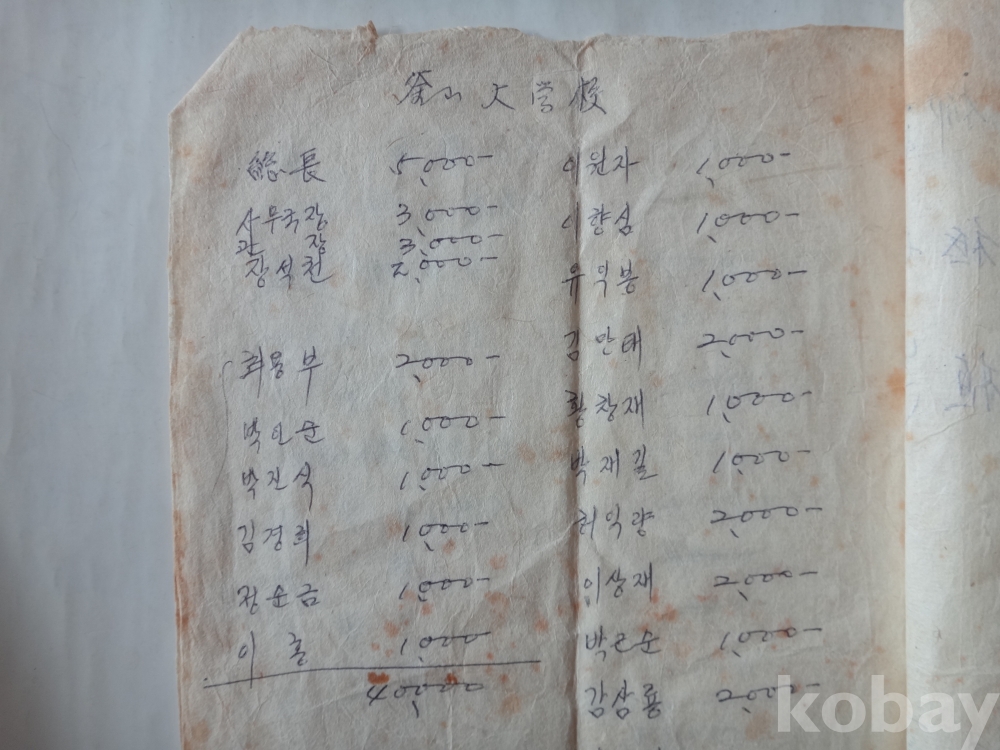 釜山大学校
総長 5,000-
사무국장 3,000-
관장 3,000-
장석천 2,000-
최용부 2,000-
박인순 1,000-
박진식 1,000-
김경희 1,000-
정순금 1,000-
이홍 1,000-
40,000
이원자 1,000-
이향심 1,000-
유익봉 1,000-
김만태 2,000-
황창재 1,000-
박재길 1,000-
최익량 2,000-
이상재 2,000-
박근순 1,000-
김삼룡 2,000-
kobay